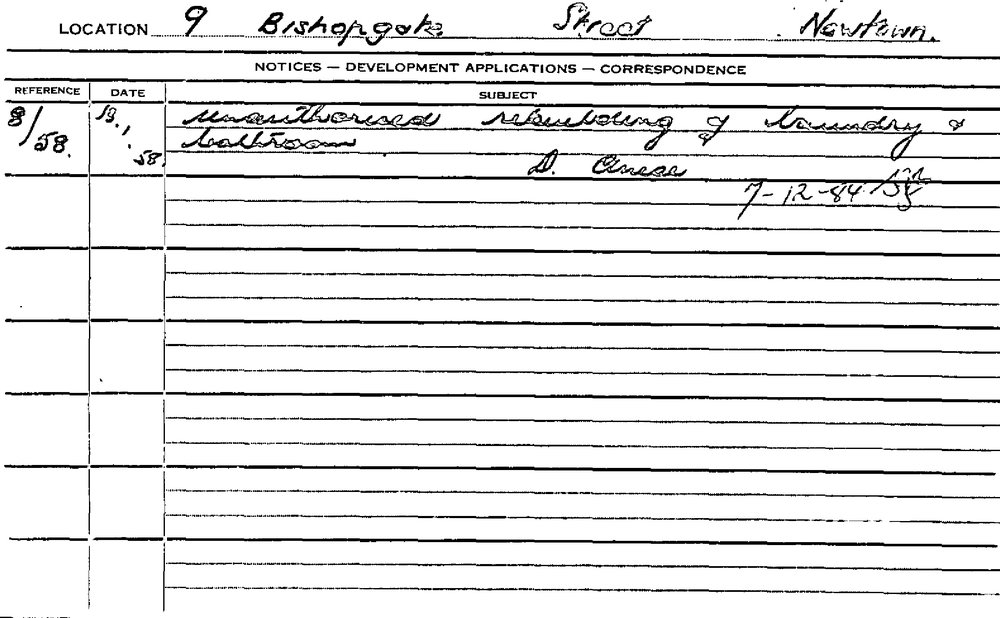 LOCATION 9 Bishopgate Street Newtown.
NOTICES — DEVELOPMENT APPLICATIONS — CORRESPONDENCE
REFERENCE DATE SUBJECT
8/58. 13.1.58. unauthorised rebuilding of laundry &
bathroom
D.
7-12-84